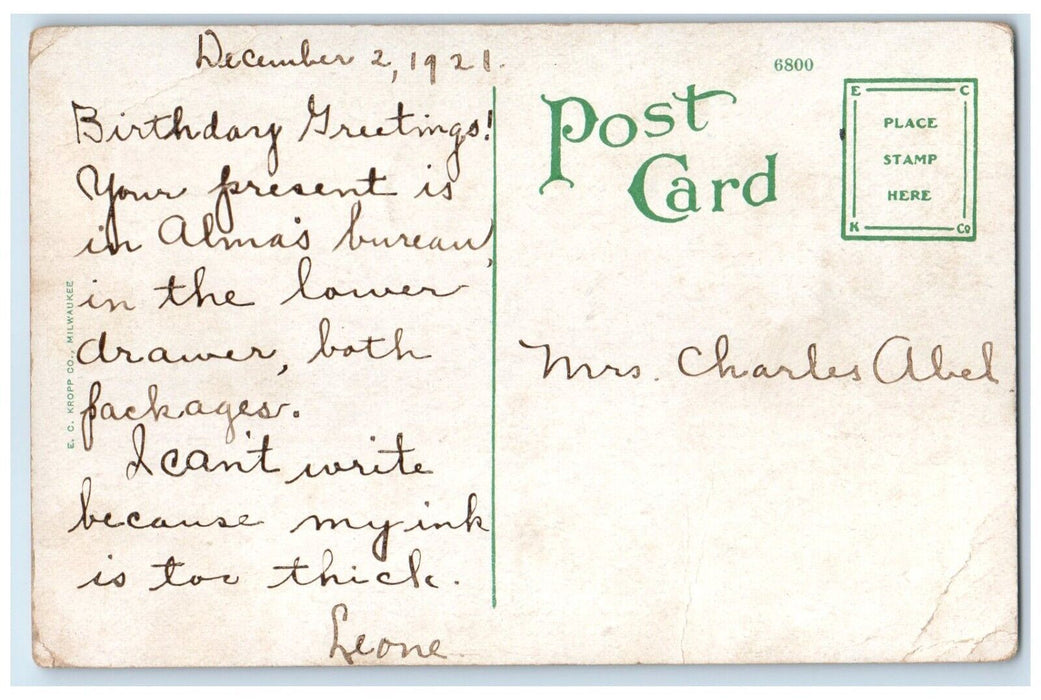 December 2, 1921.
Birthday Greetings!
Your present is
in Alma's bureau,
in the lower
drawer, both
packages.
I can't write
because my ink
is too thick.
Leone
E. C. KROPP CO., MILWAUKEE
6800
Post
Card
E C
PLACE
STAMP
HERE
K Co
Mrs. Charles Abel